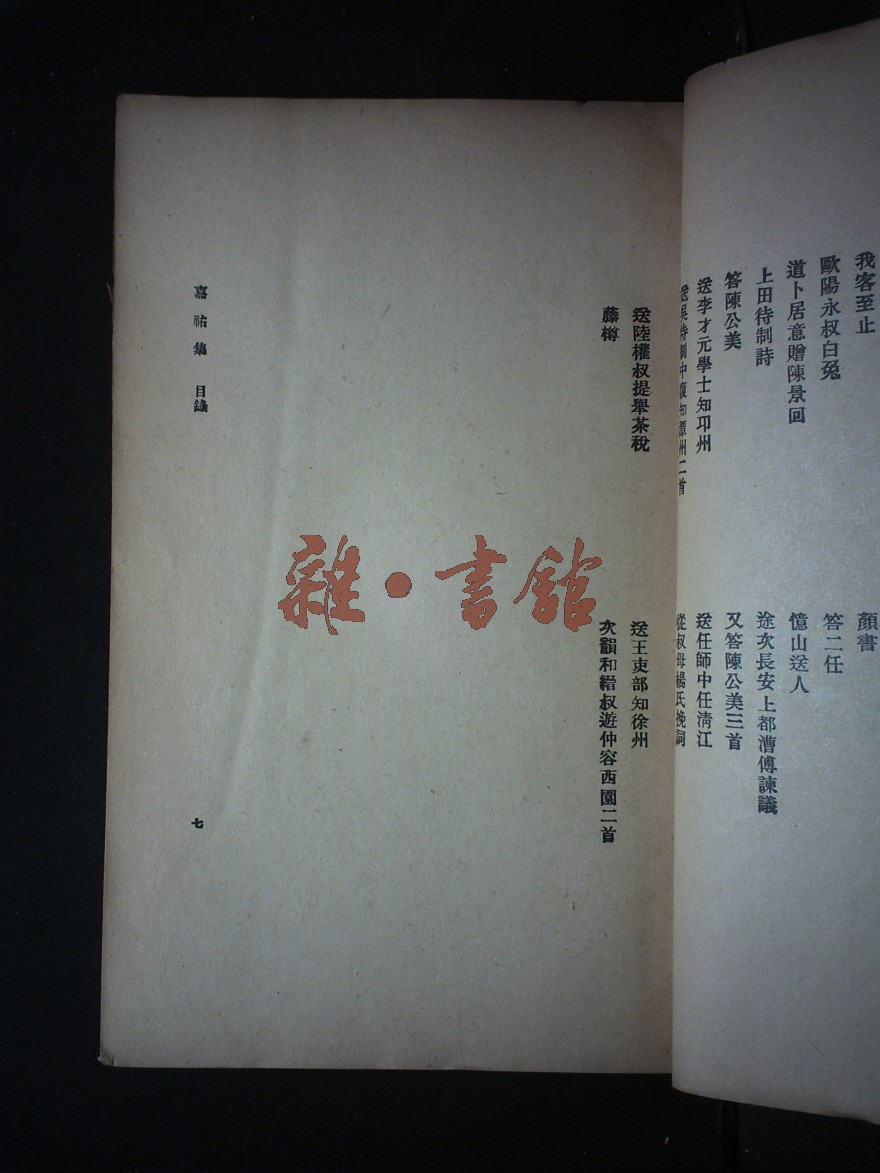 我客至止
顏書
歐陽永叔白兔
答二任
道卜居意贈陳景回
憶山送人
上田待制詩
途次長安上都漕傅諫議
答陳公美
又答陳公美三首
送李才元學士知邛州
送任師中任清江
送吳待制中復知潭州二首
從叔母楊氏挽詞
送陸權叔提舉茶稅
送王吏部知徐州
藤樽
次韻和縉叔遊仲容西園二首
嘉祐集 目錄
七
雜·書館